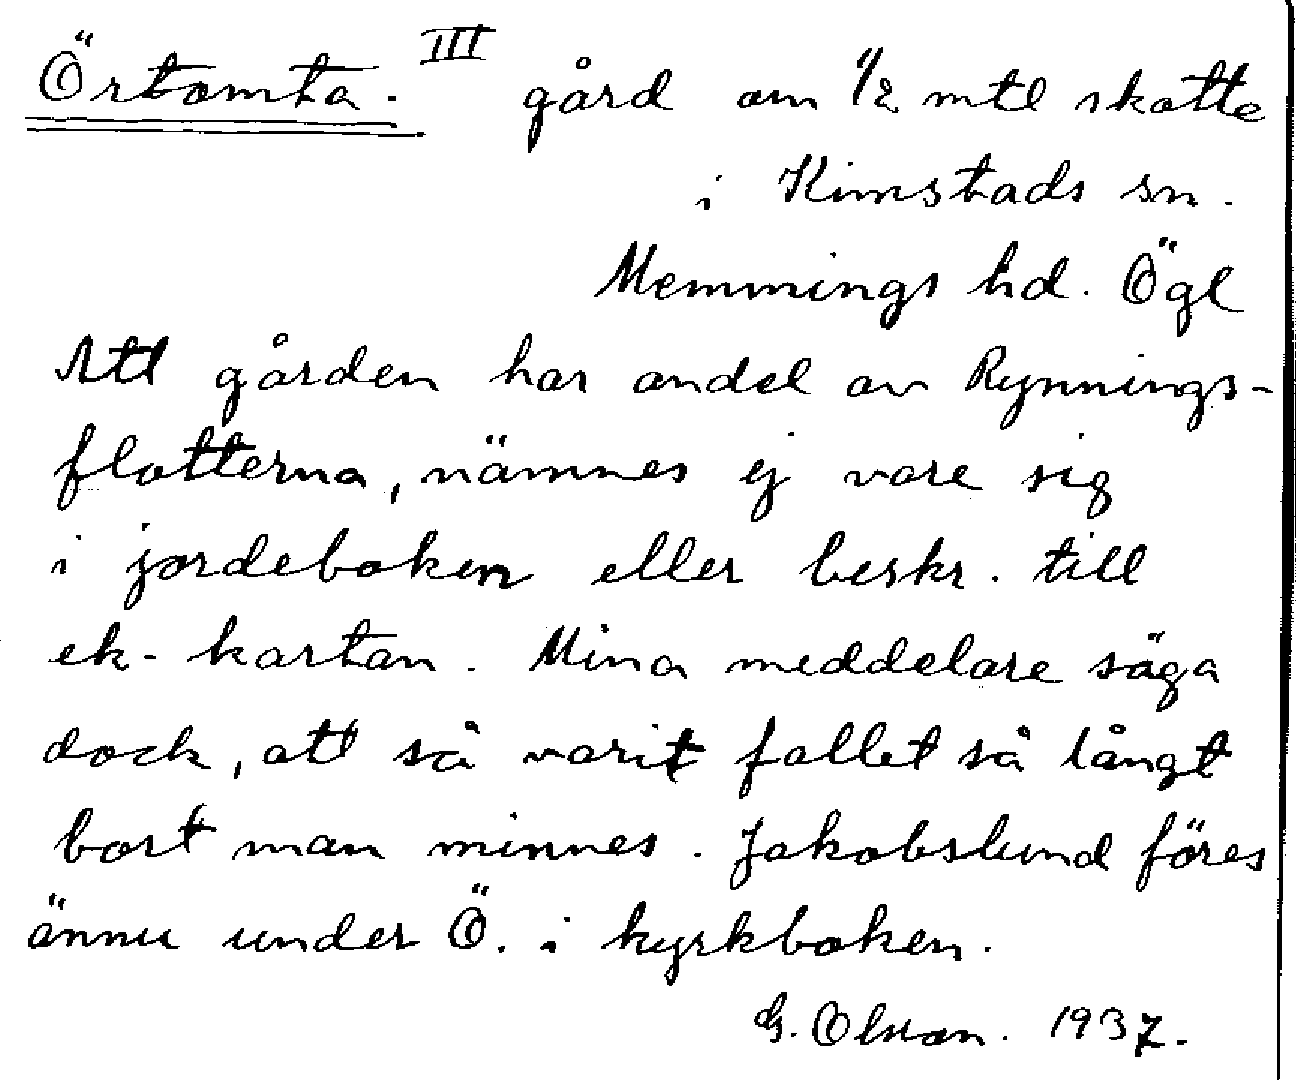 Örtomta. III gård om 1/2 mtl skatte
i Kimstads sn.
Memmings hd. Ögl
Att gården har andel av Rynnings-
flatterna, nämnes ej vare sig
i jordeboken eller beskr. till
ek-kartan. Mina meddelare säga
dock, att så varit fallet så långt
bort man minnes. Jakobslund föres
ännu under Ö. i kyrkboken.
G. Olsson. 1937.